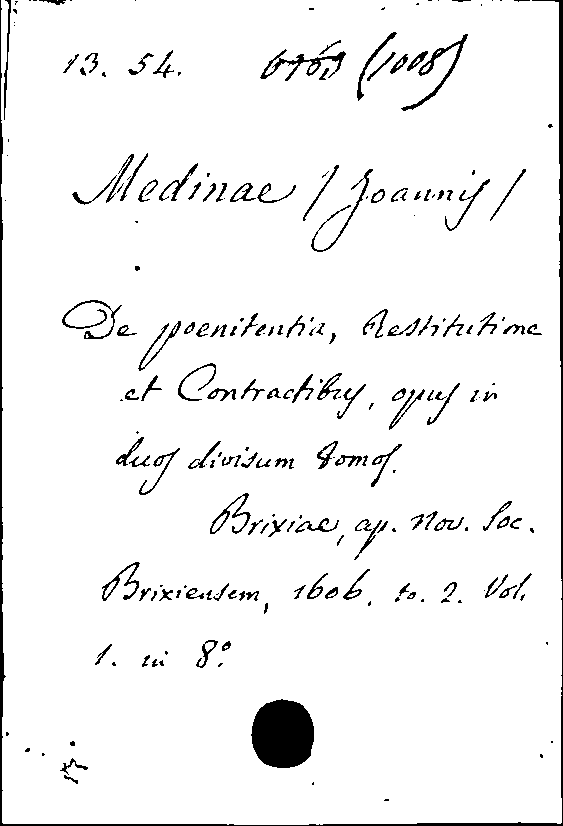 13. 54. 6763 (1008)
Medinae / Joannis /
De poenitentia, Restitutione
et Contractibus, opus in
duos divisum tomos.
Brixiae, ap. Nov. Soc.
Brixiensem, 1606. to. 2. Vol.
1. in 8º